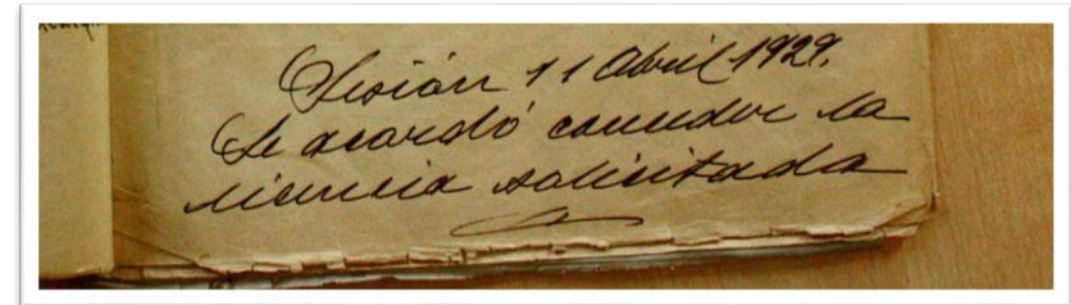 Sesión 11 Abril 1929.
Se acordó conceder la
licencia solicitada